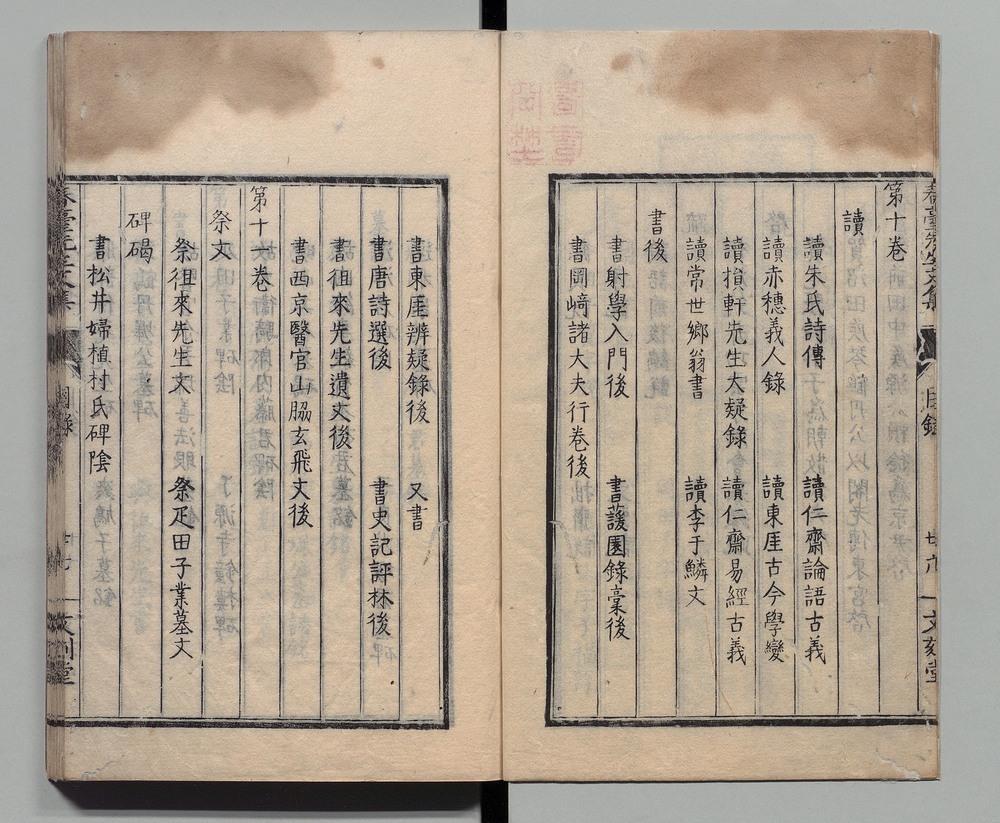 第十卷
讀
讀朱氏詩傳 讀仁齋論語古義
讀赤穗義人錄 讀東厓古今學變
讀損軒先生大疑錄 讀仁齋易經古義
讀常世鄉翁書 讀李于鱗文
書後
書射學入門後 書蘐園錄稾後
書岡﨑諸大夫行卷後
文刻堂
書東厓辨疑錄後 又書
書唐詩選後 書史記評林後
書徂來先生遺文後
書西京醫官山脇玄飛文後
第十一卷
祭文
祭徂來先生文 祭疋田子業墓文
碑碣
書松井婦植村氏碑陰